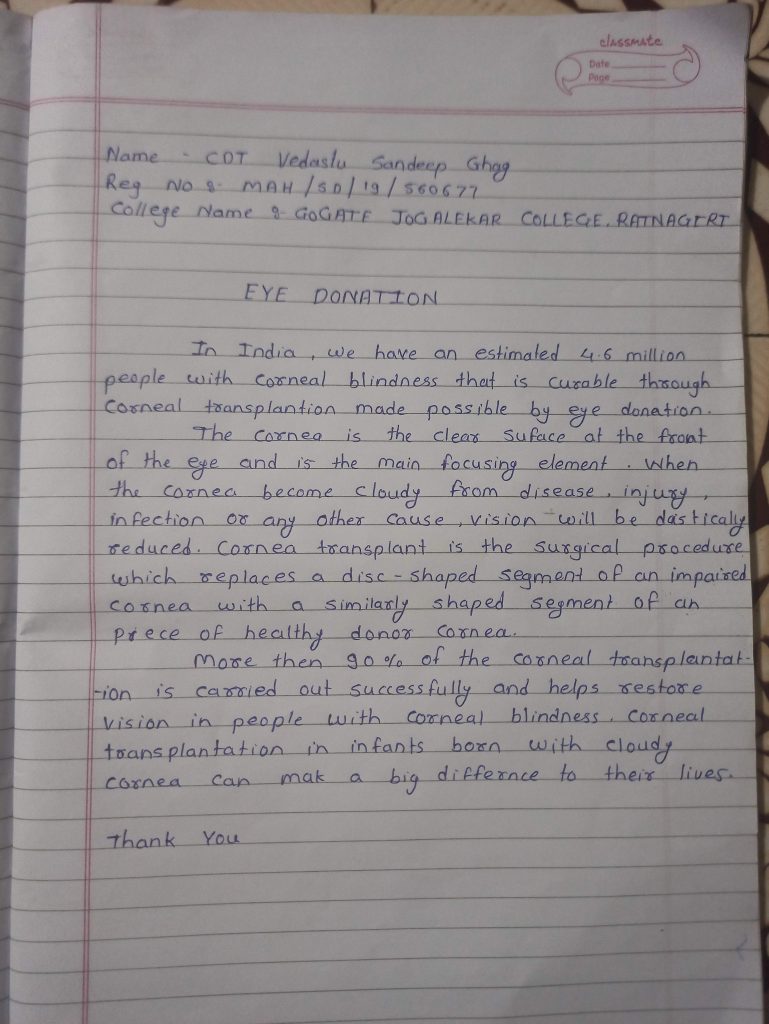 classmate
Date
Page
Name - CDT Vedaslu Sandeep Ghag
Reg No :- MAH/SD/19/560677
College Name :- GOGATE JOGALEKAR COLLEGE, RATNAGIRI
EYE DONATION
In India, we have an estimated 4.6 million
people with corneal blindness that is curable through
corneal transplantion made possible by eye donation.
The cornea is the clear suface at the front
of the eye and is the main focusing element. When
the cornea become cloudy from disease, injury,
infection or any other cause, vision will be dastically
reduced. Cornea transplant is the surgical procedure
which replaces a disc-shaped segment of an impaired
cornea with a similarly shaped segment of an
piece of healthy donor cornea.
More then 90% of the corneal transplantat-
-ion is carried out successfully and helps restore
vision in people with corneal blindness. Corneal
transplantation in infants born with cloudy
cornea can mak a big differnce to their lives.
Thank You